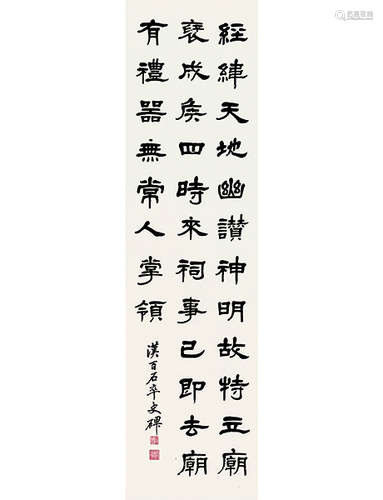 經緯天地幽讃神明故特立廟
褒成侯四時來祠事已即去廟
有禮器無常人掌領
漢百石卒史碑